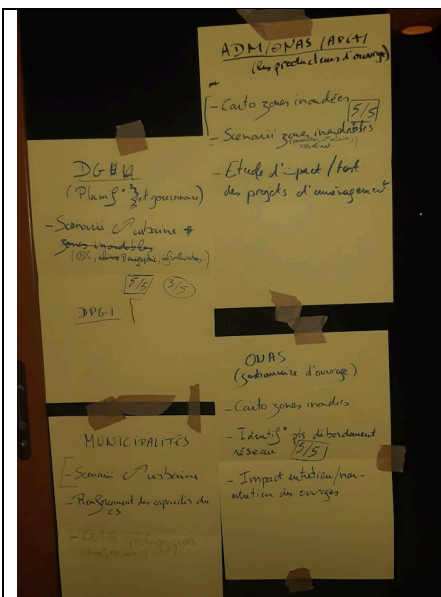 ADM/ONAS/APIX/
(les producteurs d'ouvrage)
- Carto zones inondées 5/5
- Scenarii zones inondables
- Etude d'impact / test
des projets d'aménagement
(Planif° et gouvernance)
- Scenarii urbaine
zones inondables
5/5 3/5
DPGI
ONAS
(gestionnaire d'ouvrage)
- Carto zones inondées
- Identif° pts débordement
réseau 5/5
- Impact entretien/non-
entretien des ouvrages
MUNICIPALITÉS
- Scenarii urbaine
- Renforcement des capacités du
CS